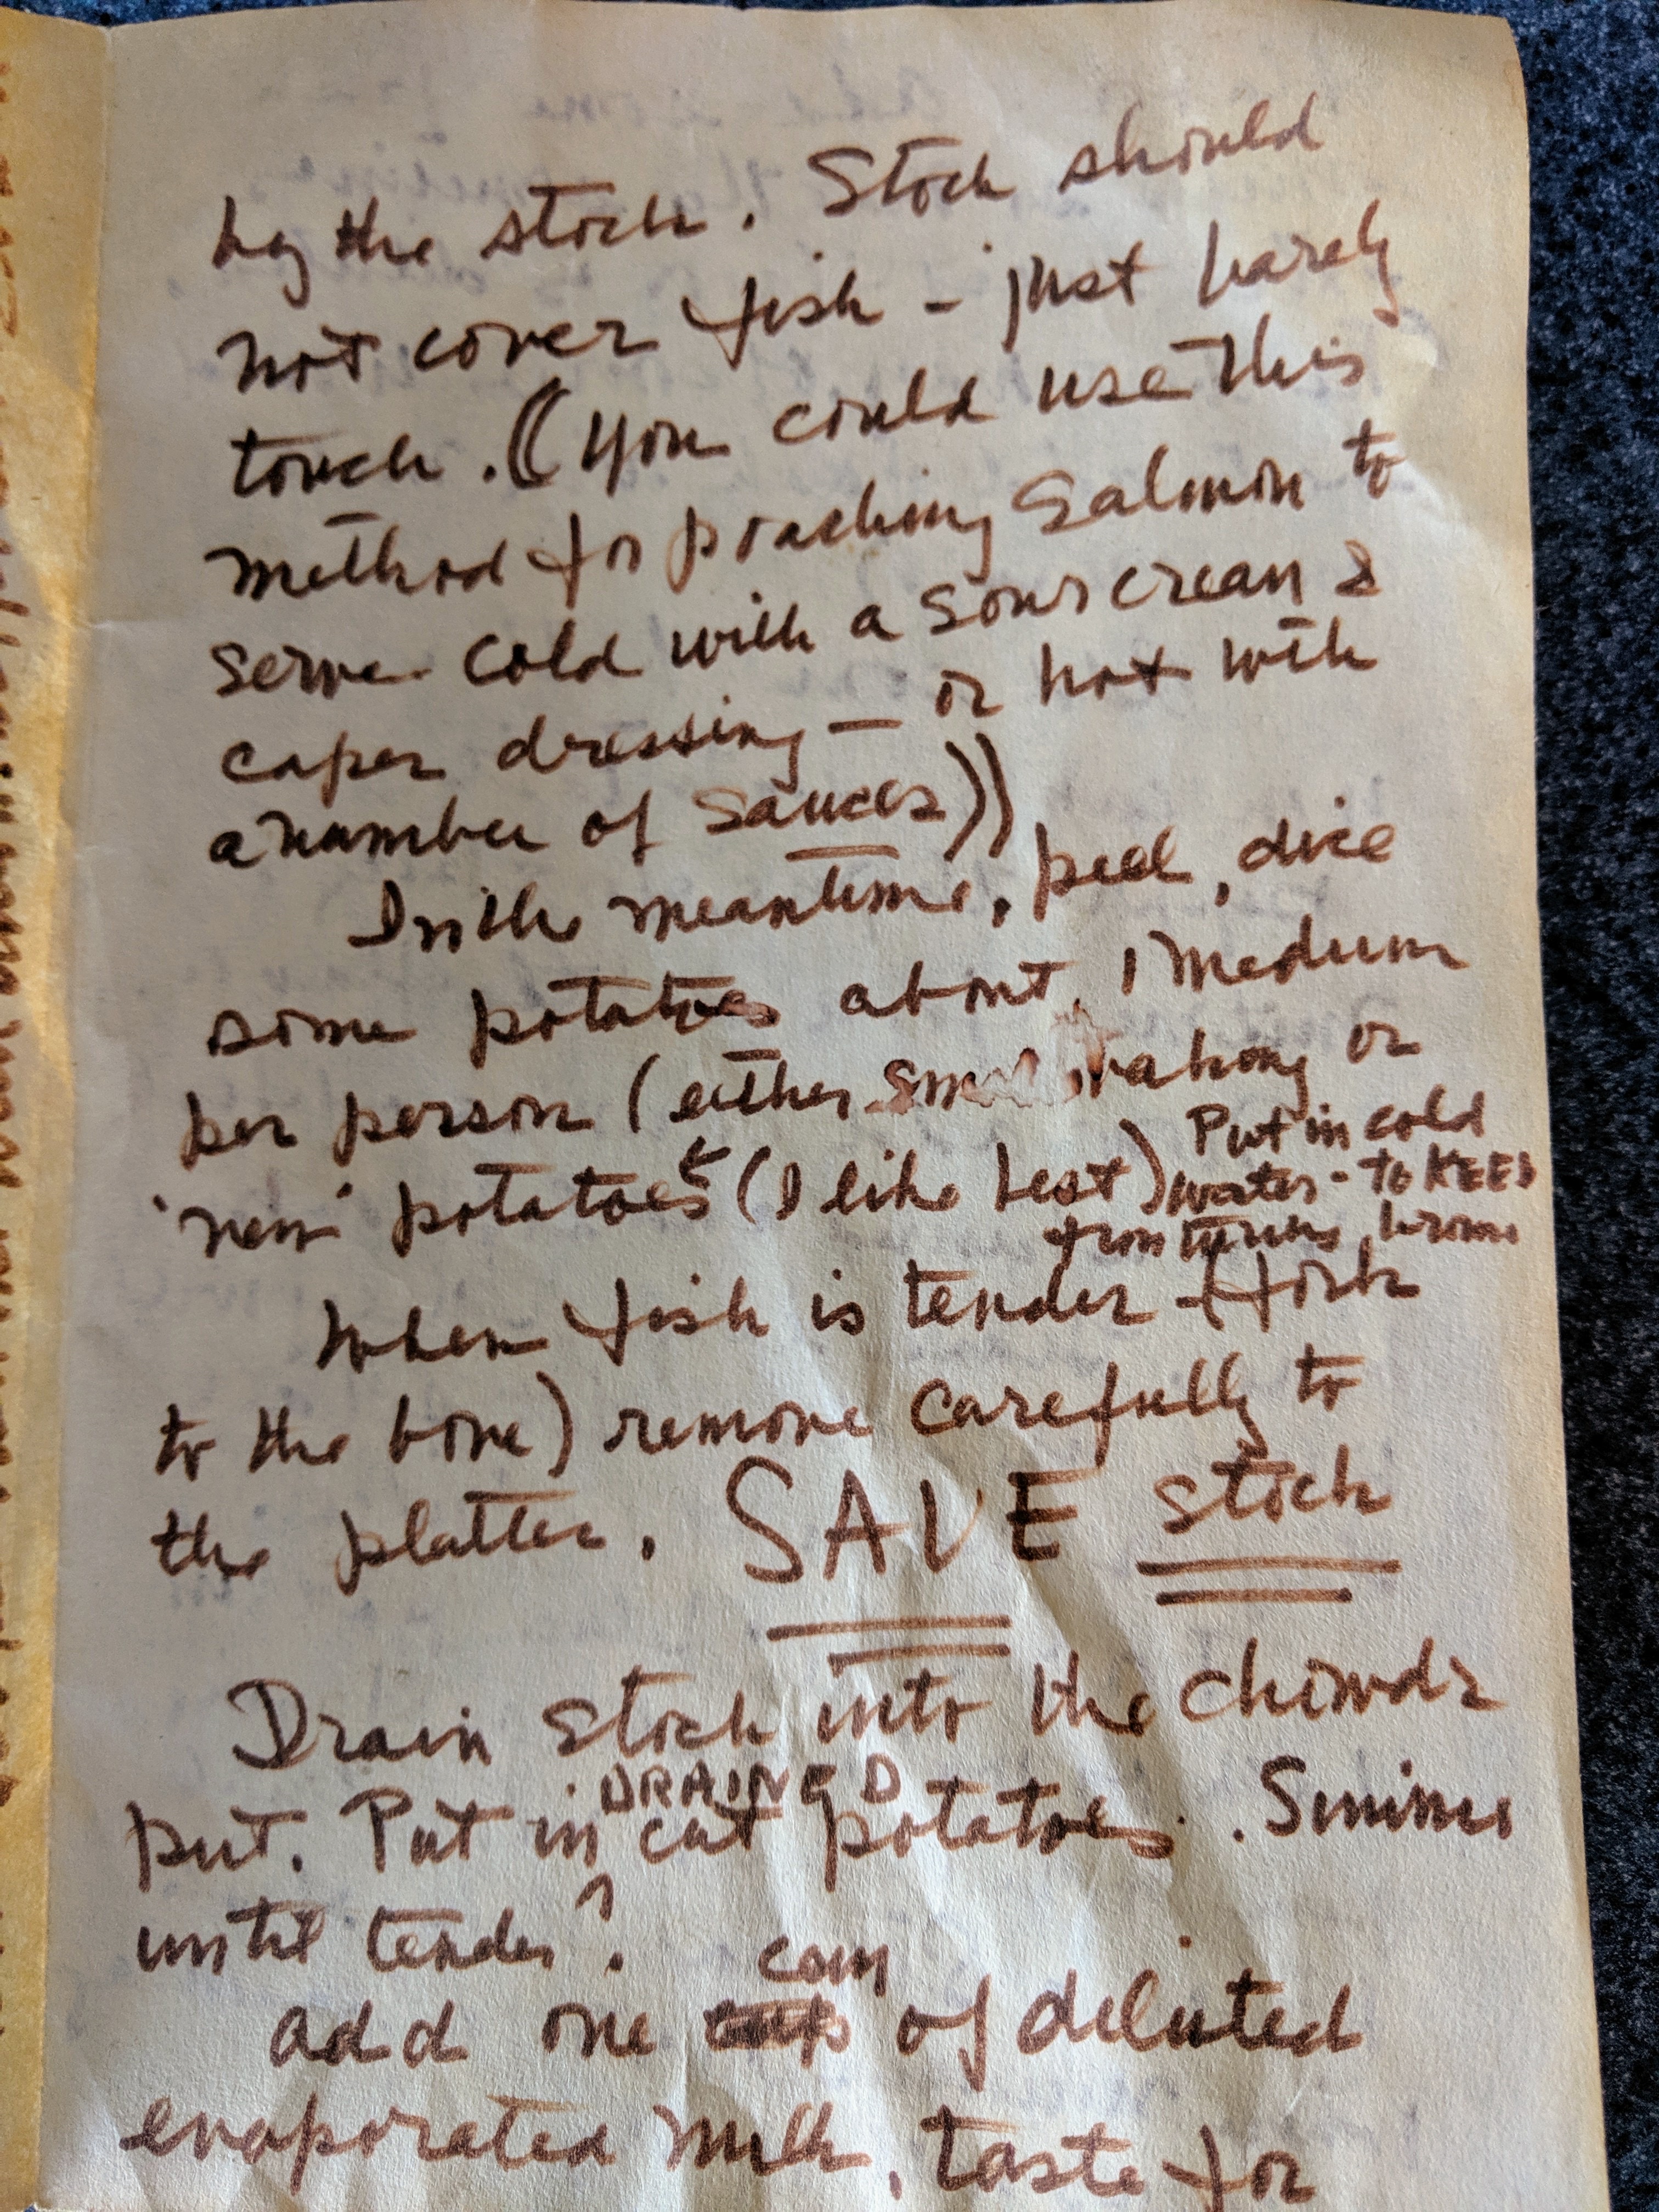 by the stock. Stock should
not cover fish - just barely
touch. ((You could use this
method for poaching Salmon to
serve cold with a sour cream &
caper dressing — or hot with
a number of sauces))
In the meantime, peel, dice
some potatoes about 1 medium
per person (either small baking or
'new' potatoes (I like best) Put in cold
water - TO KEEP
from turning brown
When fish is tender (fork
to the bone) remove carefully to
the platter. SAVE stock
Drain stock into the chowder
DRAINED
put. Put in cut potatoes. Simmer
until tender?
can
add one of diluted
evaporated milk, taste for